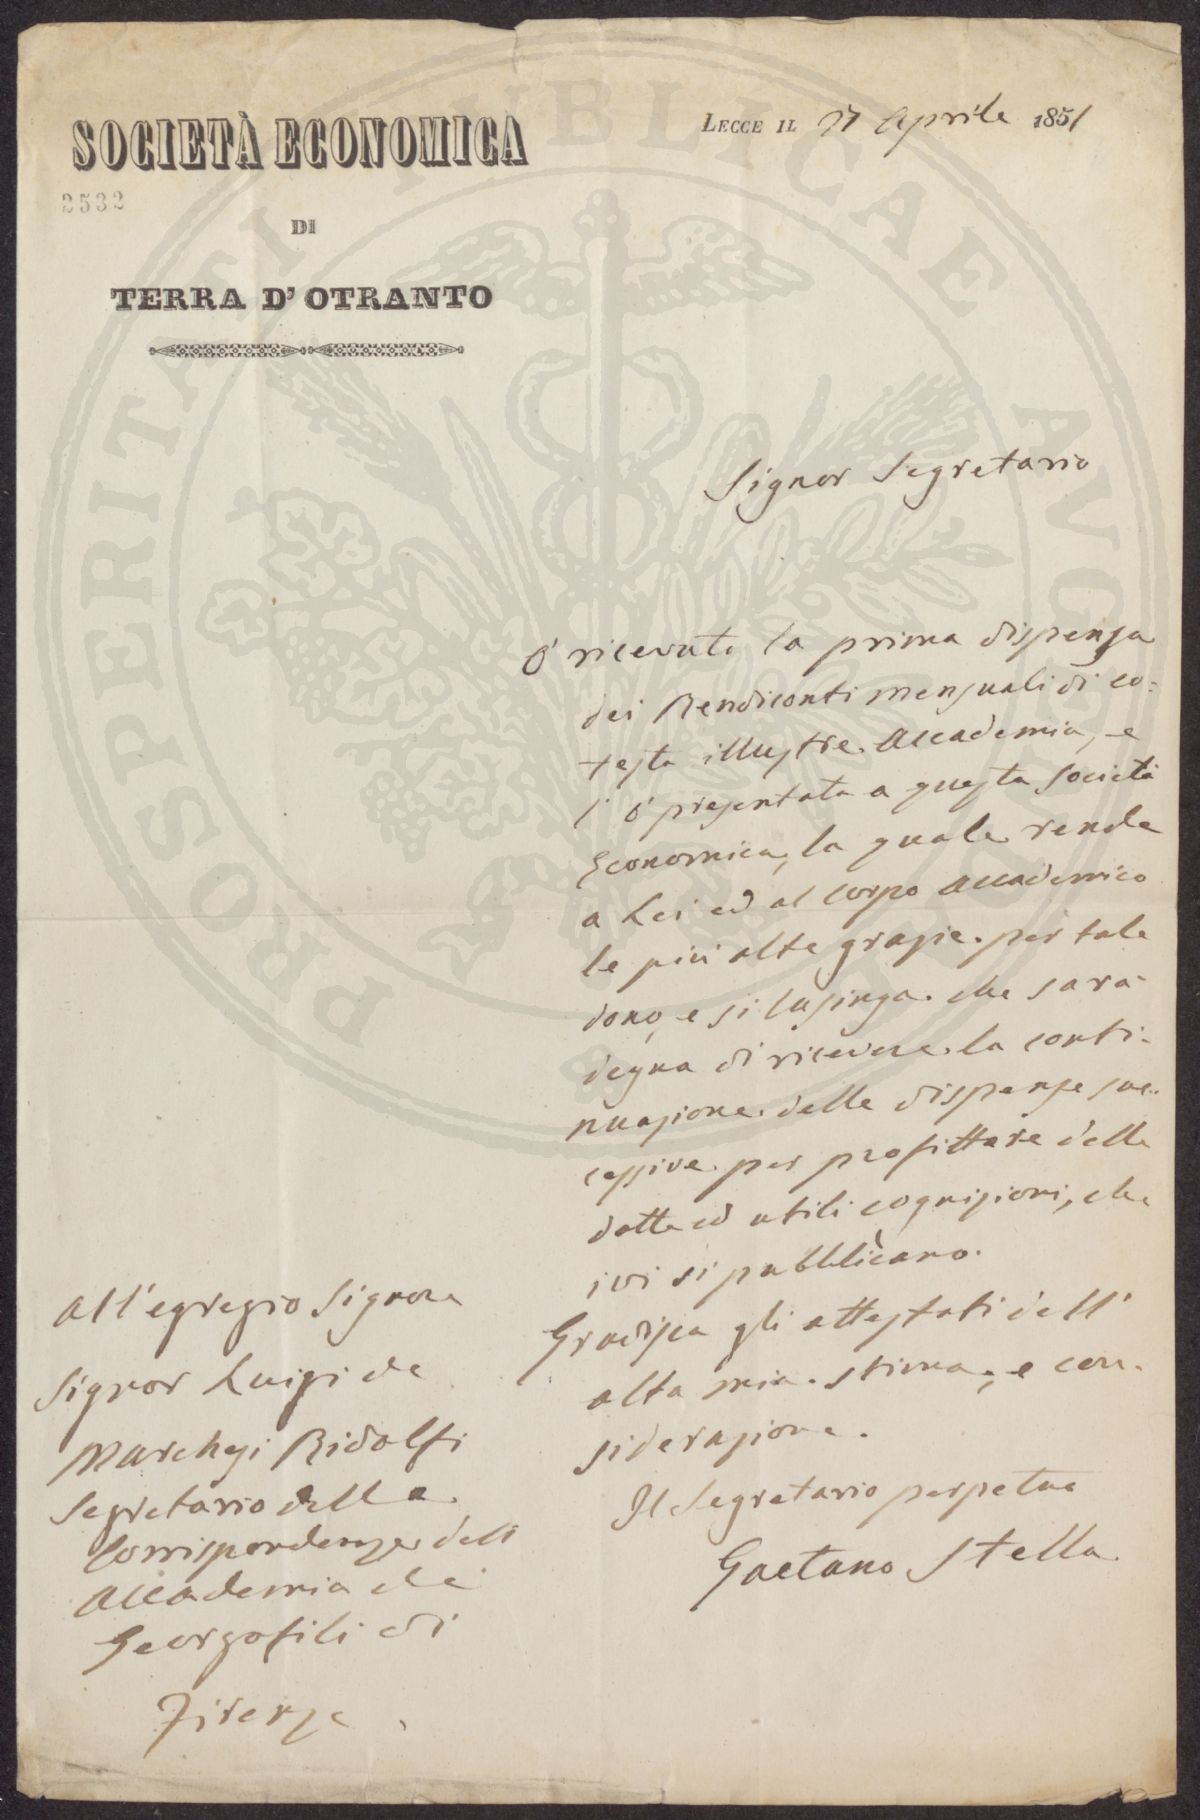 SOCIETÀ ECONOMICA
2532
DI
TERRA D'OTRANTO
LECCE IL 27 Aprile 1851
Signor Segretario
Ó ricevuto la prima dispensa
dei Rendiconti mensuali di co-
testa illustre Accademia, e
l'ó presentata a questa Società
Economica, la quale rende
a Lei ed al Corpo Accademico
le più alte grazie per tale
dono, e si lusinga che sarà
degna di ricevere la conti-
nuazione delle dispense suc-
cessive per profittare delle
dotte ed utili cognizioni, che
ivi si pubblicano.
Gradisca gli attestati dell'
alta mia stima, e con-
siderazione.
Il Segretario perpetuo
Gaetano Stella
All'egregio Signore
Signor Luigi de
Marchesi Ridolfi
Segretario della
Corrispondenza dell'
Accademia de'
Georgofili di
Firenze
PROSPERITATI PUBLICAE AVGENDAE